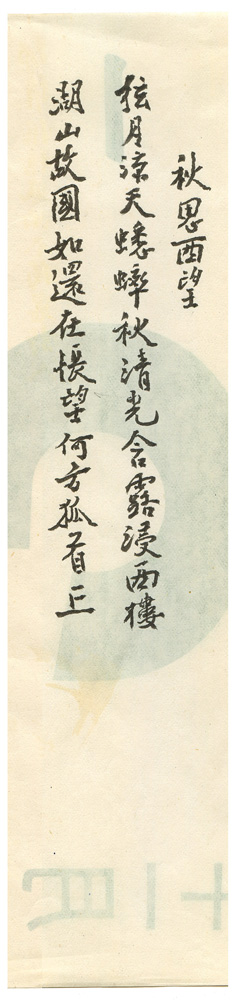 秋思西望
弦月涼天蟋蟀秋清光含露浸西樓
湖山故國如還在悵望何方狐首丘